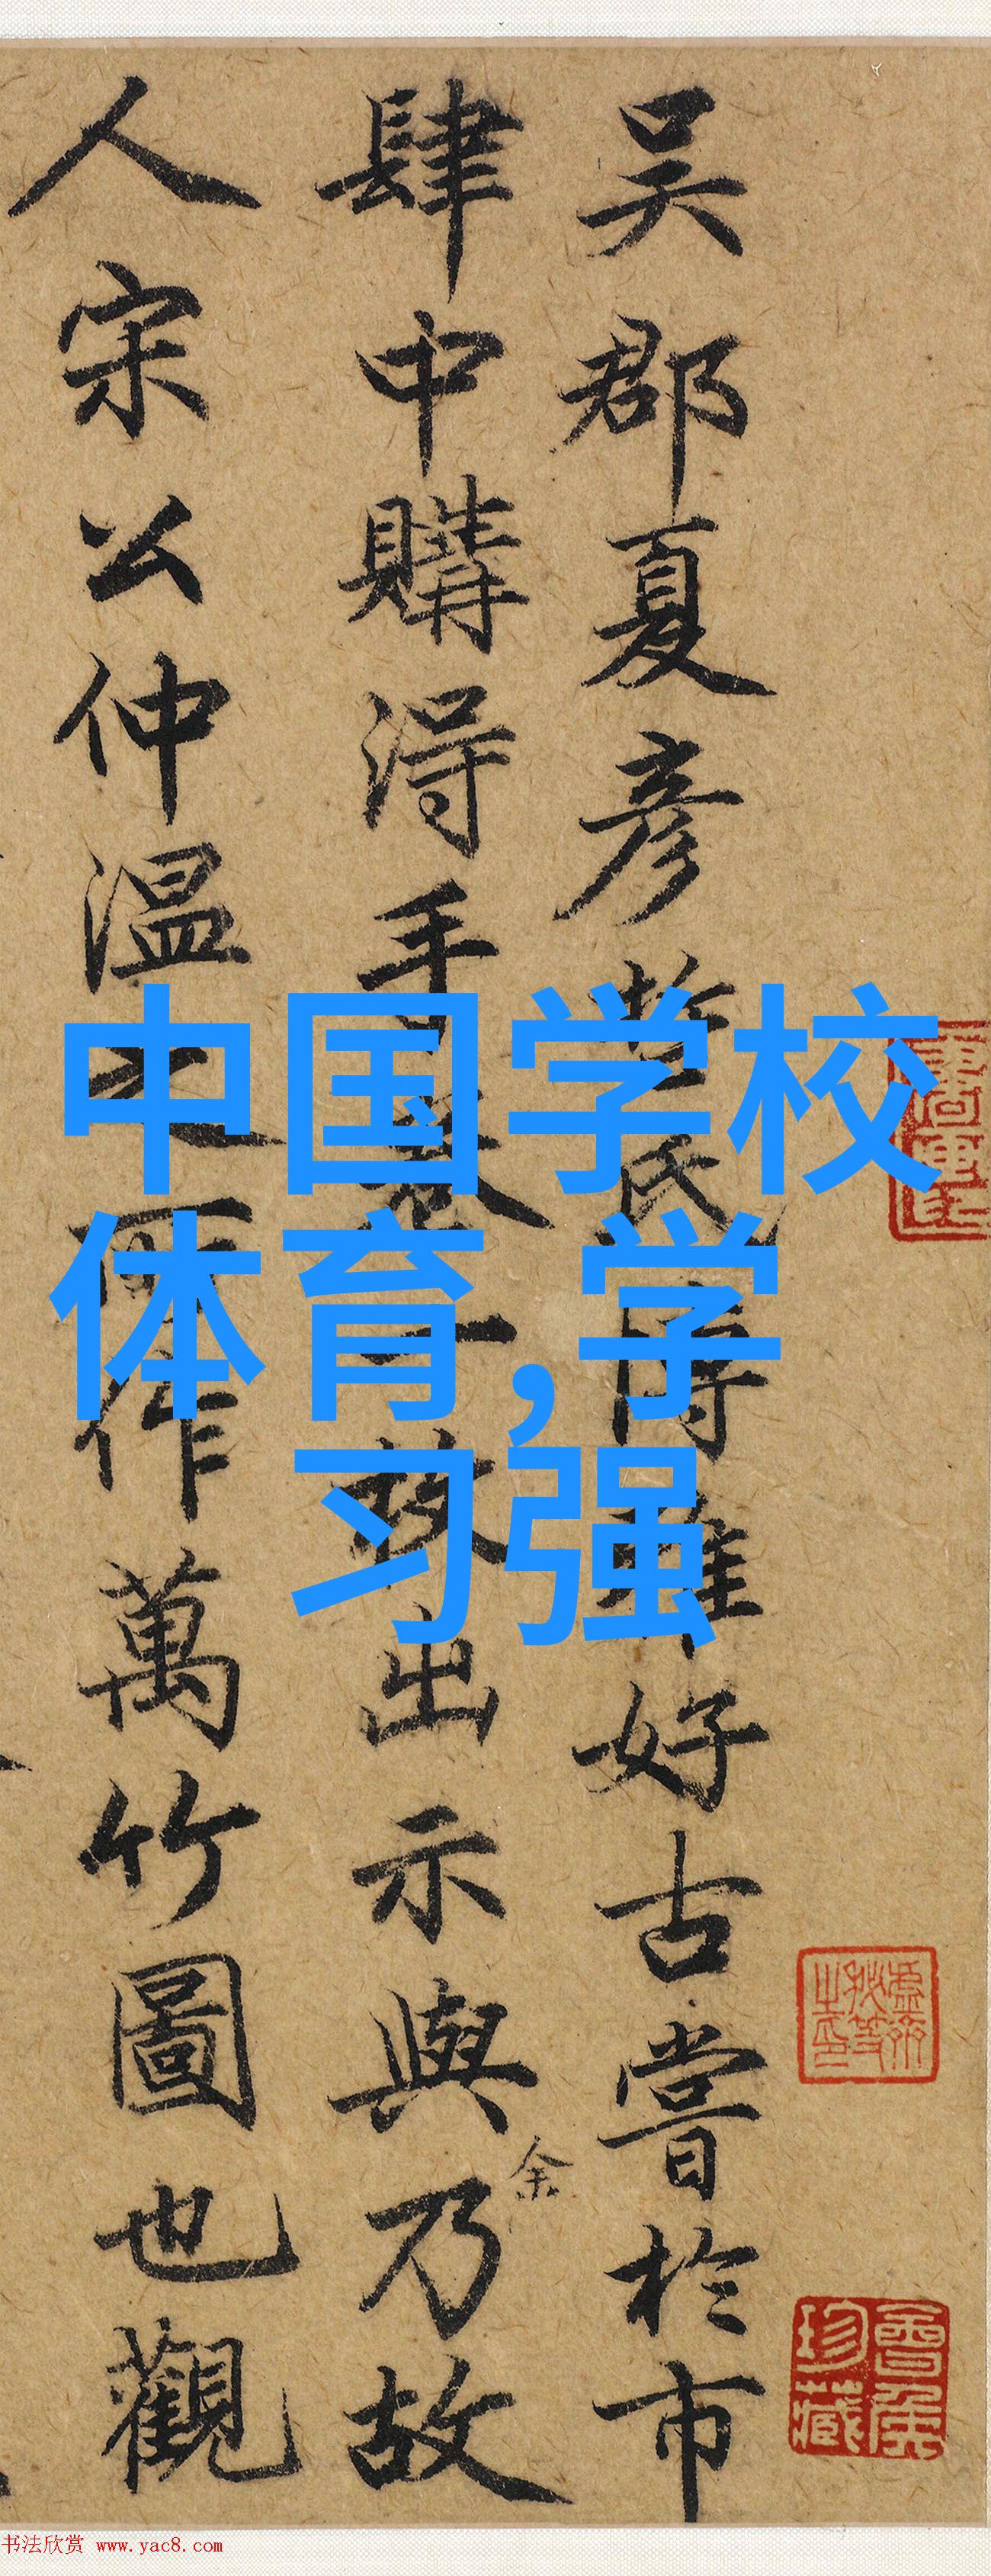 吴郡夏彦哲氏博雅好古嘗於市
肆中購得手卷一
出示與乃故
余
人宋公仲溫之所作萬竹圖也觀
中国学校
体育,学
习强
珍藏
书法欣赏 www.yac8.com